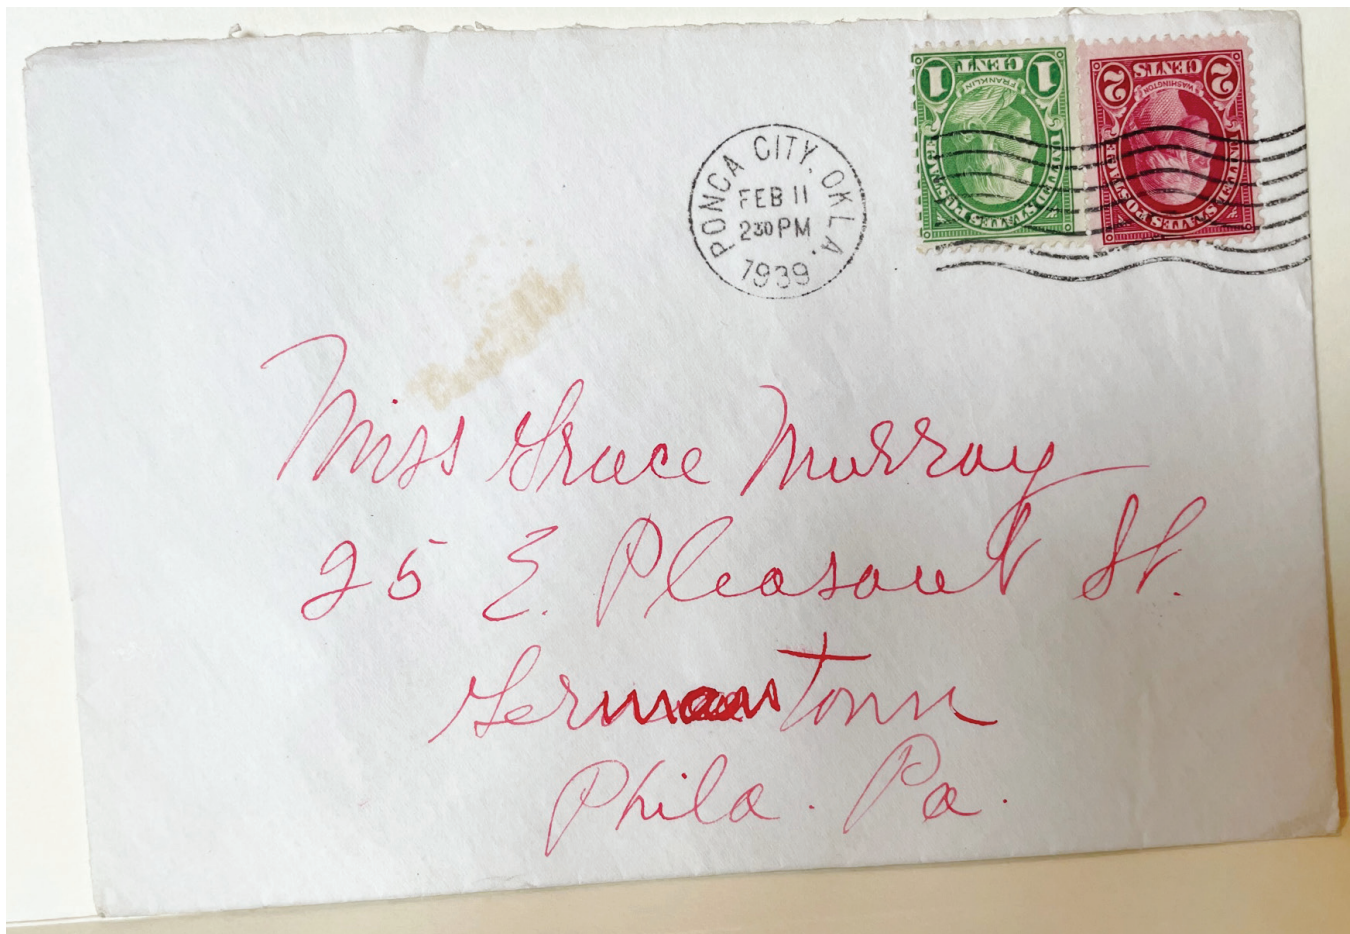 PONCA CITY, OKLA.
FEB 11
230 PM
1939
1 CENT 1
FRANKLIN
UNITED STATES POSTAGE
2 CENTS 2
WASHINGTON
UNITED STATES POSTAGE
Miss Grace Murray
25 E. Pleasant St.
Germantown
Phila. Pa.